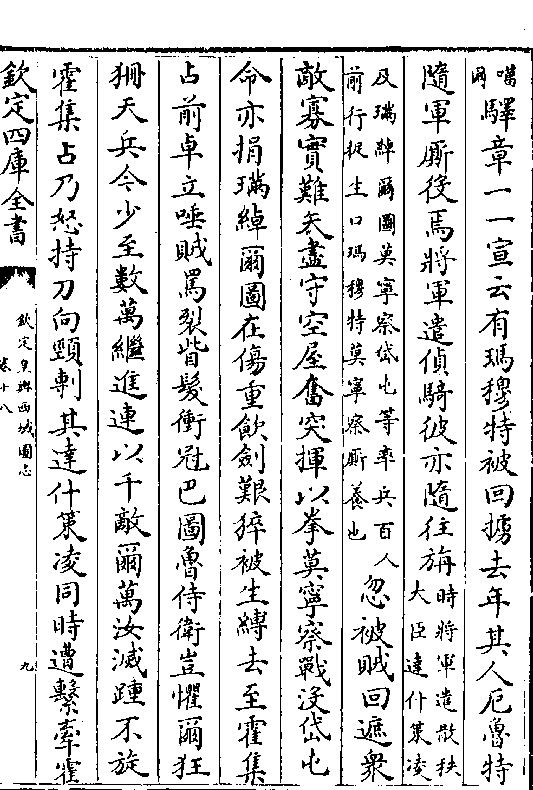 噶爾驛章一一宣云有瑪穆特被回擄去年其人厄魯特
隨軍廝後焉將軍遣偵騎彼亦隨往旃時將軍遣散秩大臣達什策凌
及瑞綽爾圖莫寧察岱屯等率兵百人前行捉生口瑪穆特莫寧察廝養也忽被賊回遮衆
敵寡實難矢盡守空屋奮突揮以拳莫寧察戰没岱屯
命亦捐瑞綽爾圖在傷重飲劍艱猝被生縛去至霍集
占前卓立唾賊罵裂眥髮衝冠巴圖魯侍衛豈懼爾狂
狦天兵今少至數萬繼進連以千敵爾萬汝滅踵不旋
霍集占乃怒持刀向頸剸其達什策凌同時遭繫牽霍
欽定四庫全書
欽定皇輿西域圖志
卷十八
九